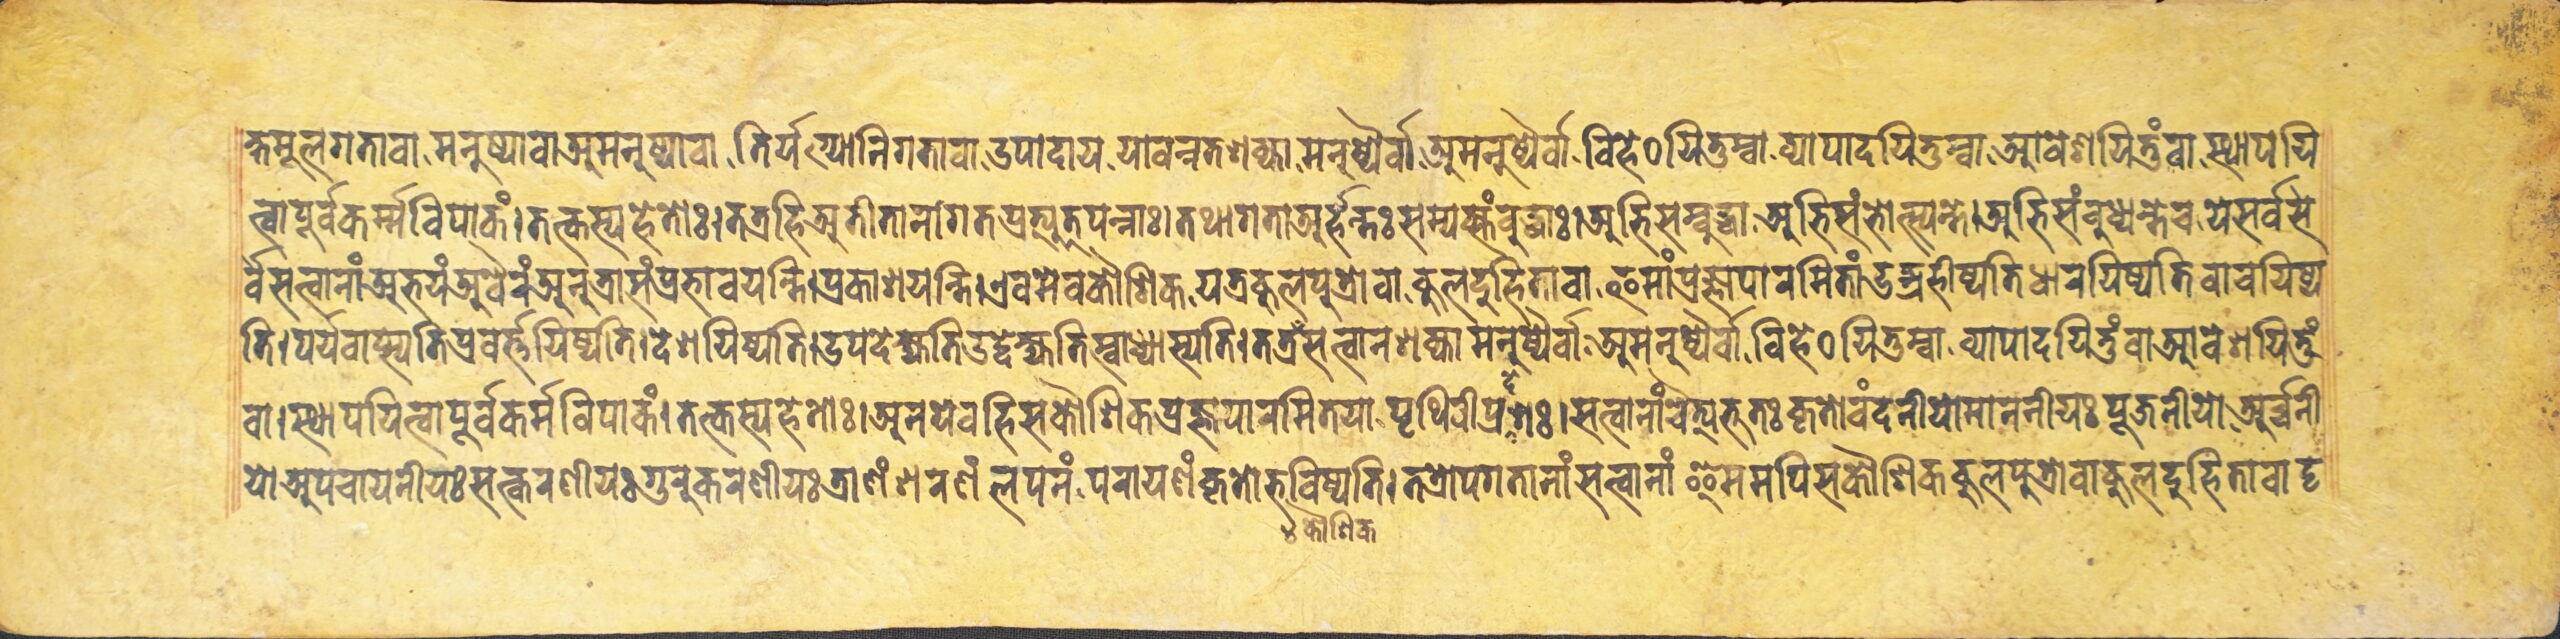 क्षमूलगतावा मनुष्यावाअमनुष्यावा तिर्यग्योनिगतावा उपादाय यावन्नतशक्या मनुष्यैर्वा अमनुष्यैर्वा विहेठयितुम्वा व्यापादयितुम्वा आवेशयितुंवा स्थापयि
त्वापूर्वकर्म्मविपाकं।तत्कस्यहेतोः।तत्रहिअतीतानागतप्रत्युत्पन्नाः।तथागताअर्हन्तःसम्यक्संबुद्धाः।अभिसम्बुद्धा अभिसंभोत्स्यन्ते।अभिसंबुध्यन्तेच येसर्वस
र्वसत्वानांअभयंअवैरंअनुत्रासंप्रभावयन्ति।प्रकाशयन्ति।एवमेवकौशिक यत्रकुलपुत्रोवा कुलदुहितावा इमांप्रज्ञापारमितांउद्ग्रहीष्यतिधारयिष्यति वाचयिष्य
ति।पर्यवाप्स्यतिप्रवर्त्तयिष्यति।देशयिष्यति।उपदेक्ष्यतिउद्देक्ष्यतिस्वाध्यास्यति।तत्रसत्वानशक्या मनुष्यैर्वा अमनुष्यैर्वा विहेठयितुम्वा व्यापादयितुंवाआवेशयितुं
वा।स्थापयित्वापूर्वकर्मविपाकं।तत्कस्यहेतोः।अनयैवहिसकौशिकप्रज्ञापारमितया पृथिवीप्रदेशः।सत्वानांचैत्यभूतःकृतोवंदनीयोमाननीयःपूजनीयो अर्च्चनी
योअपचायनीयःसत्करणीयःगुरुकरणीयःत्राणंशरणं लयनं परायणंकृतोभविष्यति।तत्रोपगतानांसत्वानां इममपिसकौशिककुलपुत्रोवाकुलदुहितावा दृ
कौशिक